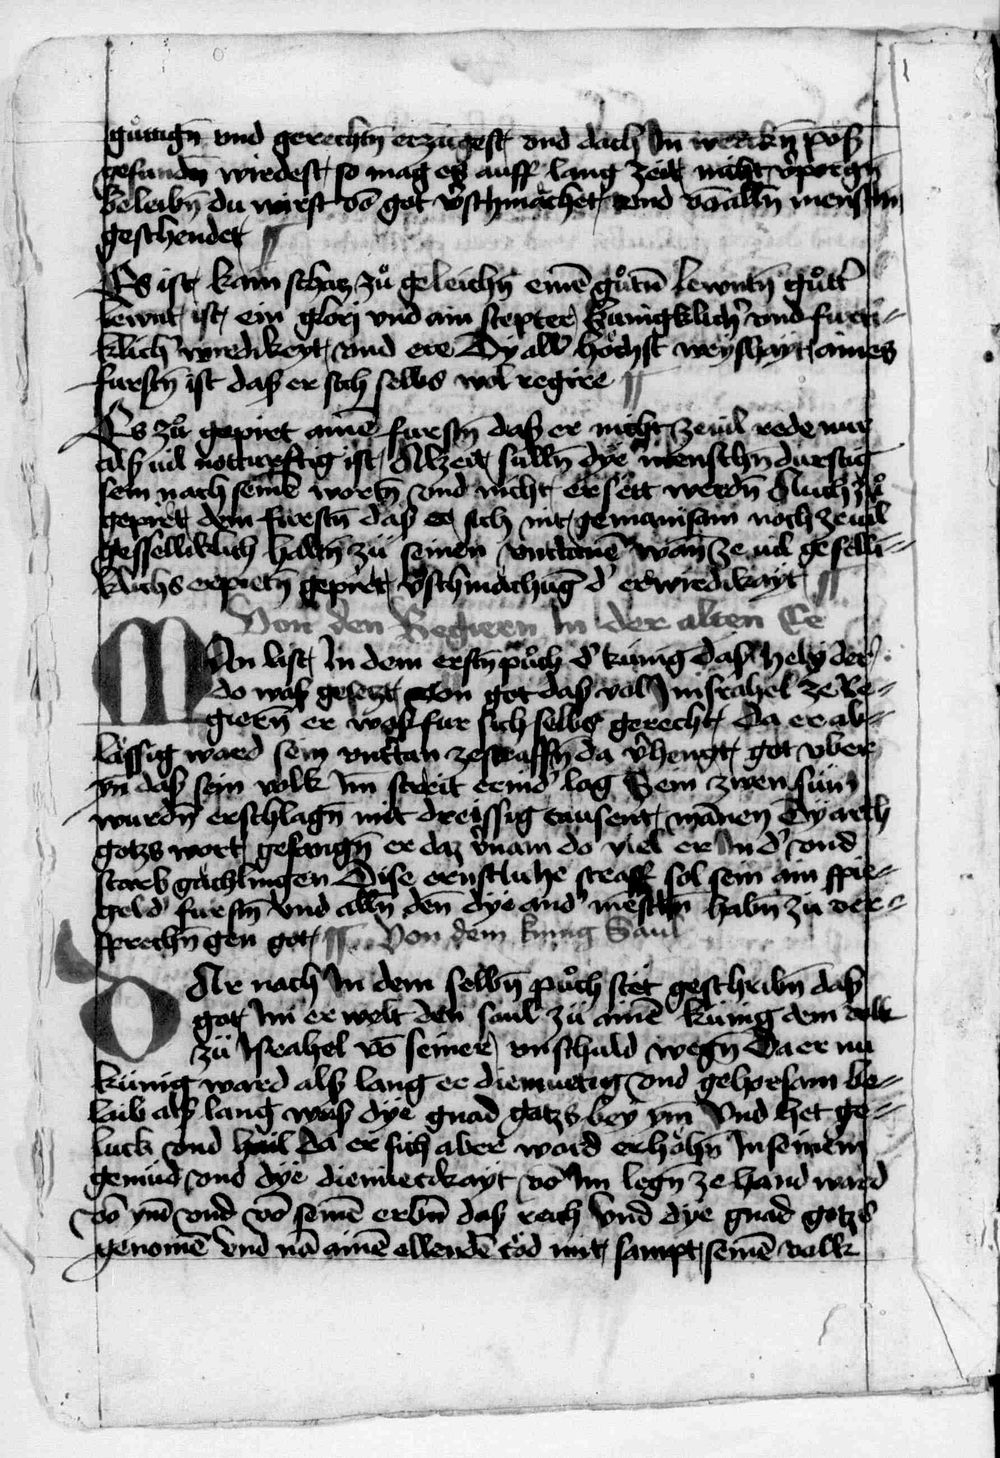 gůttign̄ vnd gerechtn̄ erzaigest vnd dach Jn werckn̄ pȯß
gefundn̄ wirdest so mag es auff lang zeit nicht v̓porgn̄
beleibn̄ du wirst vō got v̓schmächet vnd vō alln̄ menschn̄
geschendet
Es ist kain schatz zů geleichn̄ einē gůtn̄ lewntn̄ gůtt̓
lewnt ist ein glori vnd ain stepter künigklich̓ vnd furst-
klich̓ wirdikeyt vnd ere Dÿ all̓ höchst weyshayt aines
furstn̄ ist daß er sich selbs wol regire
Es zů gepirt ainē furstn̄ daß er nicht zeuil rede nur
alß uil notturftig ist Alzeit sulln̄ dÿe menschn̄ durstig
sein nach seinē wortn̄ vnd nicht ersëtt werdn̄ Auch zů
gepirt dem furstn̄ daß er sich nit gemainsam noch zeuil
gesselliklich haltn̄ zü seinen vnttanē wann ze uil geselli-
klichs erpietn̄ gepirt v̓schmachūg d̓ erwirdikayt
Von den Regiern Jn der alten Ee
MAn list Jn dem erstn̄ půch d̓ künig daß hely der
do waß gesetzt von got daß vol Jn israhel ze Re-
giern̄ er waß fur sich selbs gerecht Da er ab-
lässig ward sein vnttan zestraffn̄ da v̓hengt got vber
yn̄ daß sein volk Jm streit ernid̓ lag Sein zwen sün
wurdn̄ erschlagn̄ mit dreissig tausent mānen Dÿ arch
gotzs wort gefangn̄ er daz v̓nam do viel er Jn d̓ vnd
starb gächlingen Dise ernstliche straff sol sein ain spie-
gel d̓ furstn̄ vnd alln̄ den dÿe and̓ mēschn̄ habn̄ zü ver-
sprechn̄ gen got Von dem kunig Saul
DAr nach Jn dem selbn̄ půch stet geschribn̄ daß
got Jm er welt den saul zü ainē künig dem volk
zü Jsrahel vō seiner vnschuld wegn̄ Da er nu
künig ward alß lang er diemuetig vnd gehorsam be-
laib alß lang waß dÿe gnad gotzs bey ym̄ Vnd het ge-
luck vnd hail Da er sich aber ward erhöhn̄ Jn seinem
gemüd vnd dÿe diemuetikayt vō Jm legn̄ ze hand ward
vō ym̄ vnd vō seinē erbn̄ daß reich Vnd dÿe gnad gotzs
genomē Vnd nā ainē ellendē tȯd mit sampt seinē volk